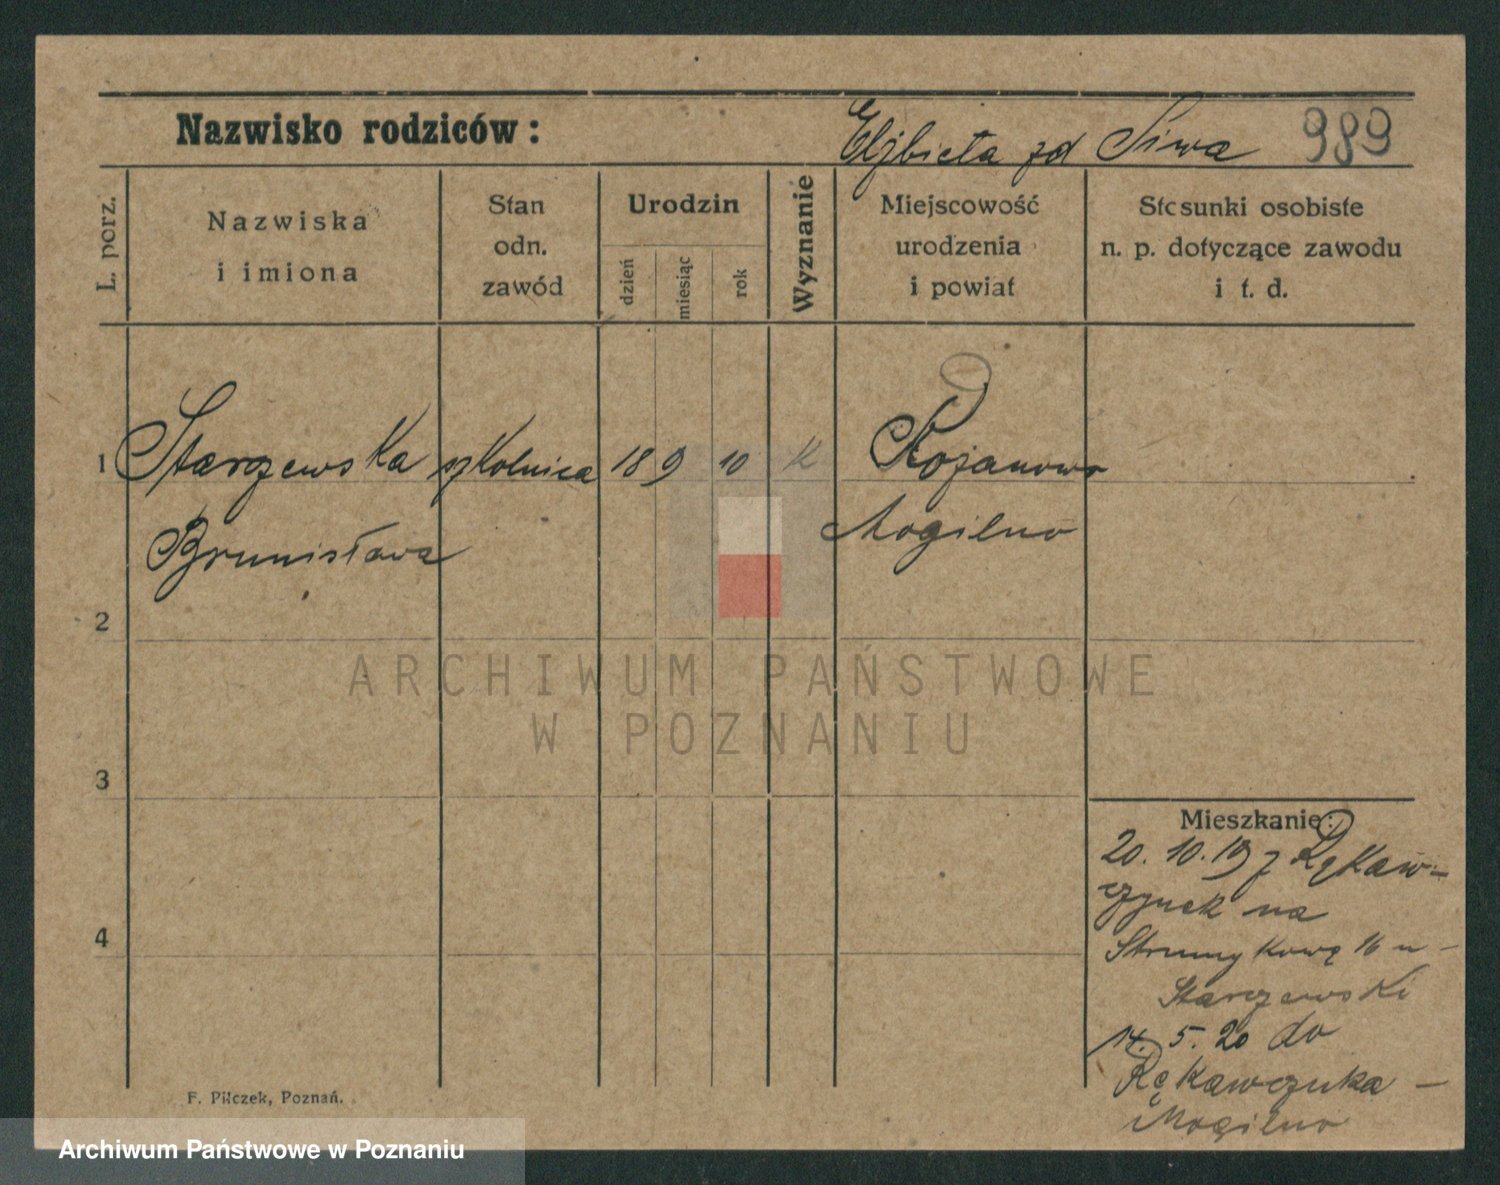 Nazwisko rodziców: Elżbieta zd Siwa 989
L. porz.
Nazwiska
i imiona
Stan
odn.
zawód
Urodzin
dzień
miesiąc
rok
Wyznanie
Miejscowość
urodzenia
i powiat
Stosunki osobiste
n. p. dotyczące zawodu
i t. d.
1 Starczewska szkolnica 18 9 10 K Rojanowo
Brunisława Mogilno
2
3
4
Mieszkanie:
20. 10. 19 z Rękaw-
czynek na
Strumykową 16 u
Starczewski
14. 5. 20 do
Rękawczynka -
Mogilno
F. Pilczek, Poznań.
ARCHIWUM PAŃSTWOWE
W POZNANIU
Archiwum Państwowe w Poznaniu